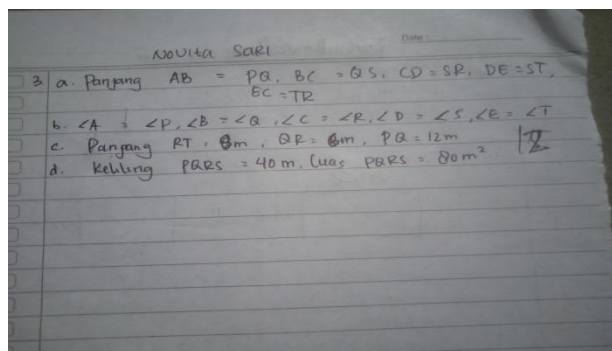 Novita Sari
Date :
3 a. Panjang AB = PQ, BC = QS, CD = SR, DE = ST,
EC = TR
b. ∠A = ∠P, ∠B = ∠Q, ∠C = ∠R, ∠D = ∠S, ∠E = ∠T
c. Panjang RT = 8m, QR = 6m, PQ = 12m
d. Keliling PQRS = 40 m. Luas PQRS = 80m²
12